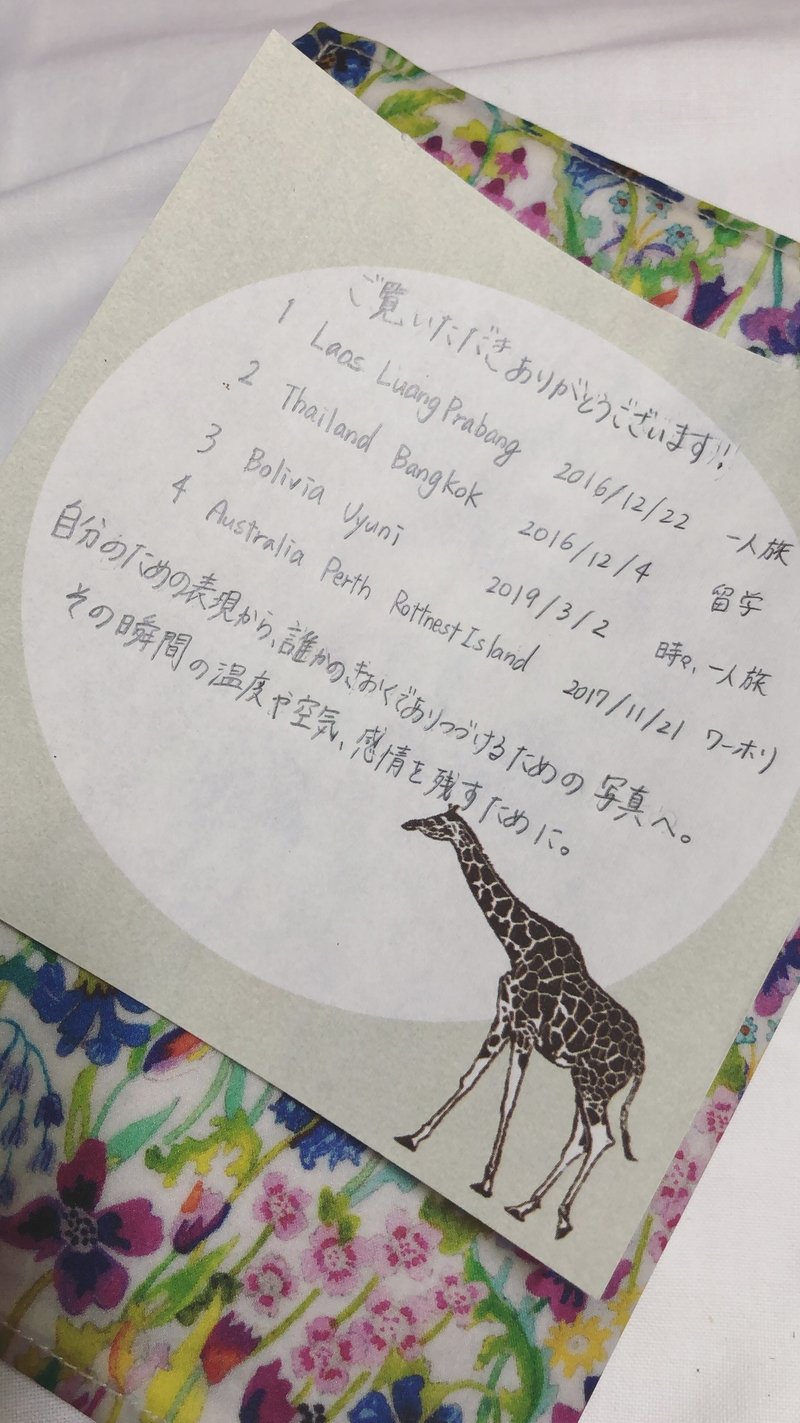 ご覧いただきありがとうございます!!
1 Laos Luang Prabang 2016/12/22 一人旅
2 Thailand Bangkok 2016/12/4 留学
3 Bolivia Uyuni 2019/3/2 時々、一人旅
4 Australia Perth Rottnest Island 2017/11/21 ワーホリ
自分のための表現から、誰かのきおくでありつづけるための写真へ。
その瞬間の温度や空気、感情を残すために。